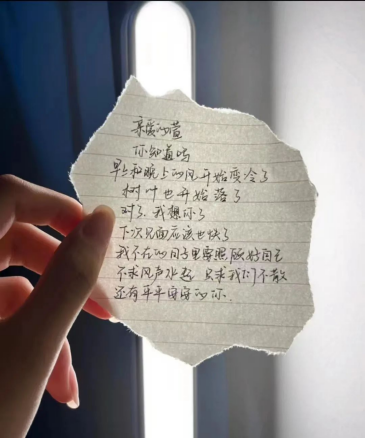 亲爱的萱
你知道吗
早上和晚上的风开始变冷了
树叶也开始落了
对了、我想你了
下次见面应该也快了
我不在的日子里要照顾好自己
不求风声水起 只求我们不散
还有平平安安的你.